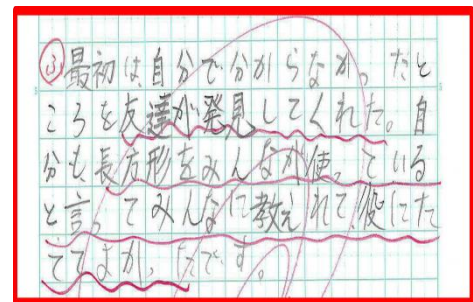 ふ最初は、自分で分からなかったと
ころを友達が発見してくれた。自
分も長方形をみんなが使っている
と言ってみんなに教えれて、役にた
ててよかったです。